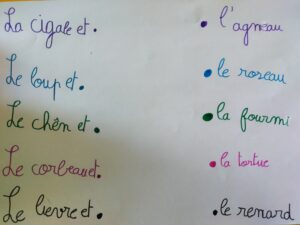 La cigale et . . l'agneau
Le loup et . . le roseau
Le chên et . . la fourmi
Le corbeau et . . la tortue
Le lievre et . . le renard